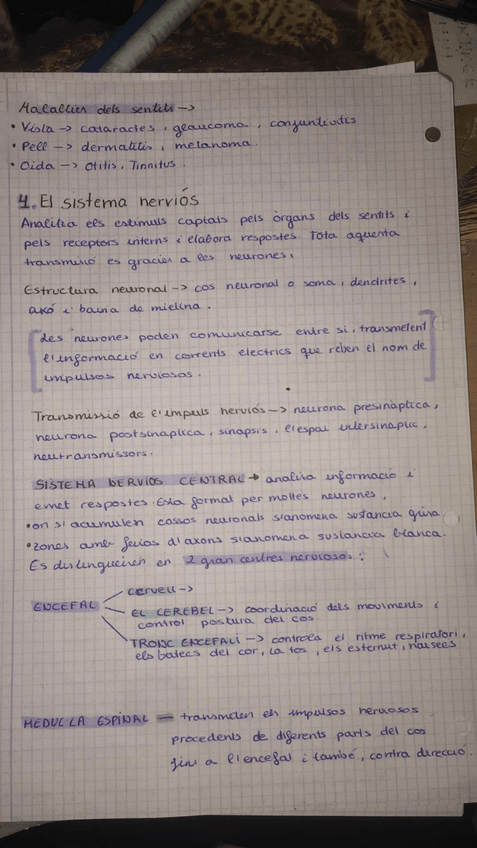 Malalties dels sentits ->
• Vista -> cataractes, glaucoma, conjuntivitis
• Pell -> dermatitis, melanoma.
• Oida -> Otitis, Tinnitus.
4. El sistema nerviós
Analitza els estimuls captats pels òrgans dels sentits i
pels receptors interns i elabora respostes. Tota aquesta
transmisió es gracies a les neurones.
Estructura neuronal -> cos neuronal o soma, dendrites,
axó i baina de mielina.
Les neurones poden comunicarse entre si, transmetent
l'informació en corrents electrics que reben el nom de
impulsos nerviosos.
Transmissió de l'impuls nerviós -> neurona presinaptica,
neurona postsinaptica, sinapsis, l'espai intersinaptic,
neutransmissors.
SISTEMA NERVIOS CENTRAL -> analitza informacio i
emet respostes. Esta format per moltes neurones,
• on s'acumulen cossos neuronals s'anomena sustancia grisa
• zones amb feixos d'axons s'anomena sustancia blanca.
Es distingueixen en 2 gran centres nerviosos:
ENCEFAL
cervell ->
EL CEREBEL -> coordinació dels moviments i
control postura del cos.
TRONC ENCEFALI -> controla el ritme respiratori,
els batecs del cor, la tos, els esternut, nausees
MEDUL·LA ESPINAL — transmeten els impulsos nerviosos
procedents de diferents parts del cos
fins a l'encefal i també, contra direcció.